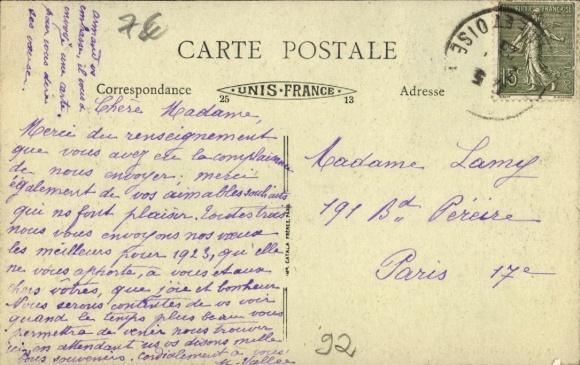 Armand vs
embrasse, il vous a
envoyé une carte
pour vous dire
ses vœux.
7€
CARTE POSTALE
Correspondance
UNIS-FRANCE
25
13
Adresse
REPUBLIQUE FRANÇAISE
15
ET OISE
Chère Madame,
Merci du renseignement
que vous avez eu la complaisance
de nous envoyer. merci
également de vos aimables souhaits
qui ns font plaisir. Toutes trois
nous vous envoyons nos vœux
les meilleurs pour 1923, qu'elle
ne vous apporte, à vous et aux
chers vôtres, que joie et bonheur.
Nous serons contentes de vs voir
quand le temps plus beau vous
permettra de venir nous trouver
ici en attendant ns vs disons mille
bons souvenirs. Cordialement à vous
M. Vallée
IMP. CATALA FRÈRES, PARIS
Madame Lamy
191 Bd Péreire
Paris 17e
92